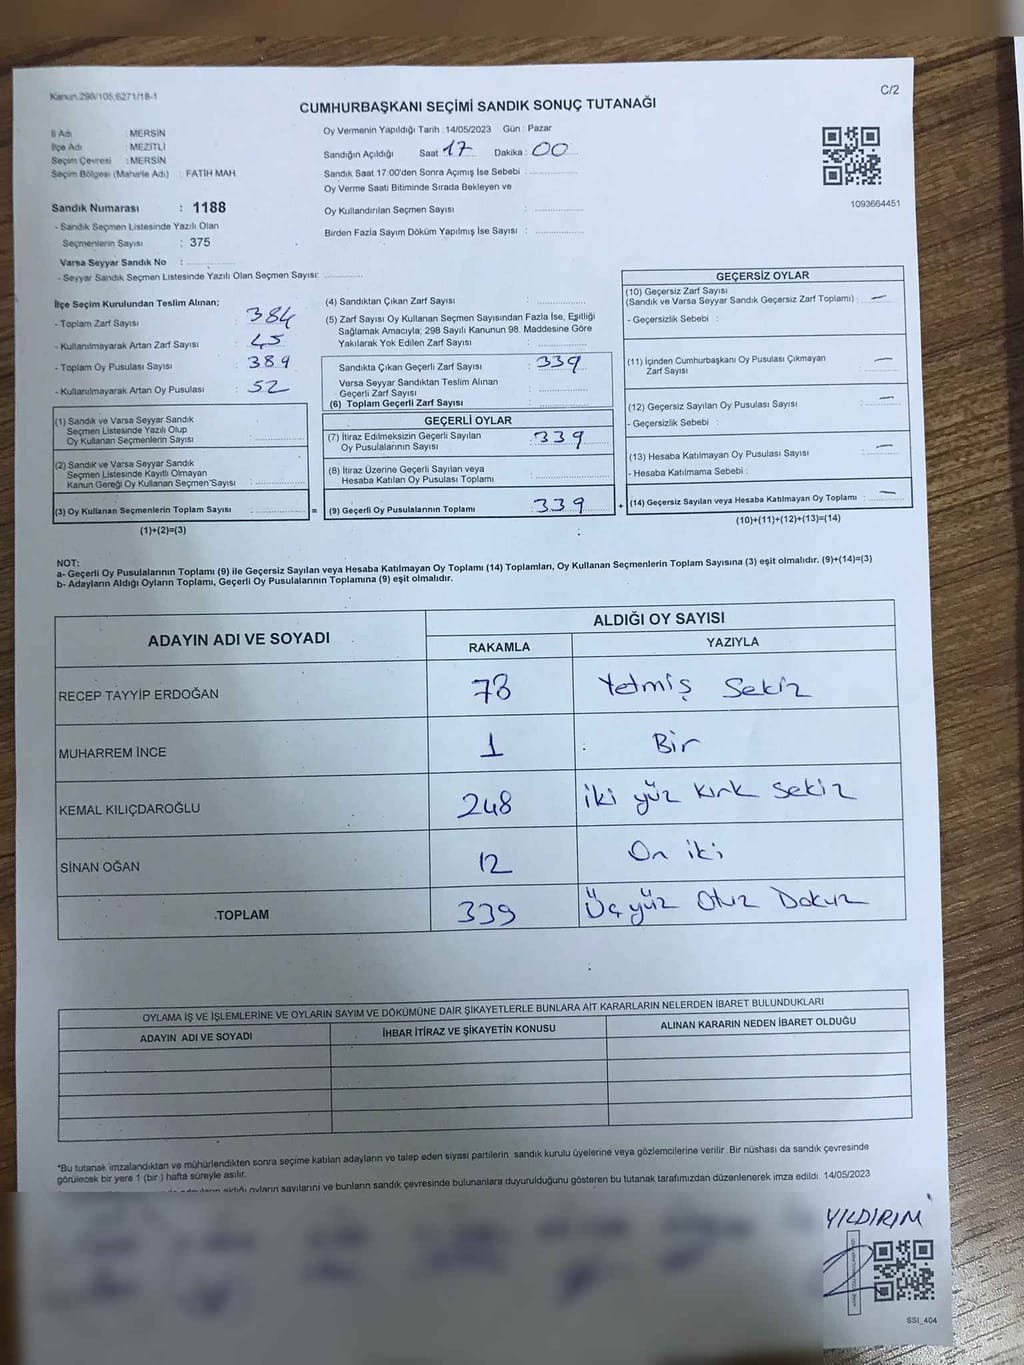 Kanun,298/105,6271/18-1
C/2
CUMHURBAŞKANI SEÇİMİ SANDIK SONUÇ TUTANAĞI
İl Adı : MERSİN
İlçe Adı : MEZİTLİ
Seçim Çevresi : MERSİN
Seçim Bölgesi (Mahalle Adı) : FATİH MAH.
Sandık Numarası : 1188
- Sandık Seçmen Listesinde Yazılı Olan
Seçmenlerin Sayısı : 375
Varsa Seyyar Sandık No :
- Seyyar Sandık Seçmen Listesinde Yazılı Olan Seçmen Sayısı:
Oy Vermenin Yapıldığı Tarih : 14/05/2023 Gün : Pazar
Sandığın Açıldığı Saat 17 Dakika : 00
Sandık Saat 17:00'den Sonra Açımış İse Sebebi :
Oy Verme Saati Bitiminde Sırada Bekleyen ve
Oy Kullandırılan Seçmen Sayısı :
Birden Fazla Sayım Döküm Yapılmış İse Sayısı :
1093664451
İlçe Seçim Kurulundan Teslim Alınan;
- Toplam Zarf Sayısı : 384
- Kullanılmayarak Artan Zarf Sayısı : 45
- Toplam Oy Pusulası Sayısı : 389
- Kullanılmayarak Artan Oy Pusulası : 52
(1) Sandık ve Varsa Seyyar Sandık
Seçmen Listesinde Yazılı Olup
Oy Kullanan Seçmenlerin Sayısı :
(2) Sandık ve Varsa Seyyar Sandık
Seçmen Listesinde Kayıtlı Olmayan
Kanun Gereği Oy Kullanan Seçmen Sayısı :
(3) Oy Kullanan Seçmenlerin Toplam Sayısı :
(1)+(2)=(3)
(4) Sandıktan Çıkan Zarf Sayısı :
(5) Zarf Sayısı Oy Kullanan Seçmen Sayısından Fazla İse, Eşitliği
Sağlamak Amacıyla; 298 Sayılı Kanunun 98. Maddesine Göre
Yakılarak Yok Edilen Zarf Sayısı :
Sandıkta Çıkan Geçerli Zarf Sayısı : 339
Varsa Seyyar Sandıktan Teslim Alınan
Geçerli Zarf Sayısı :
(6) Toplam Geçerli Zarf Sayısı :
GEÇERLİ OYLAR
(7) İtiraz Edilmeksizin Geçerli Sayılan
Oy Pusulalarının Sayısı : 339
(8) İtiraz Üzerine Geçerli Sayılan veya
Hesaba Katılan Oy Pusulası Toplamı :
= (9) Geçerli Oy Pusulalarının Toplamı : 339
GEÇERSİZ OYLAR
(10) Geçersiz Zarf Sayısı
(Sandık ve Varsa Seyyar Sandık Geçersiz Zarf Toplamı) : —
- Geçersizlik Sebebi :
(11) İçinden Cumhurbaşkanı Oy Pusulası Çıkmayan
Zarf Sayısı : —
(12) Geçersiz Sayılan Oy Pusulası Sayısı : —
- Geçersizlik Sebebi :
(13) Hesaba Katılmayan Oy Pusulası Sayısı : —
- Hesaba Katılmama Sebebi :
+ (14) Geçersiz Sayılan veya Hesaba Katılmayan Oy Toplamı : —
(10)+(11)+(12)+(13)=(14)
NOT:
a- Geçerli Oy Pusulalarının Toplamı (9) ile Geçersiz Sayılan veya Hesaba Katılmayan Oy Toplamı (14) Toplamları, Oy Kullanan Seçmenlerin Toplam Sayısına (3) eşit olmalıdır. (9)+(14)=(3)
b- Adayların Aldığı Oyların Toplamı, Geçerli Oy Pusulalarının Toplamına (9) eşit olmalıdır.
ADAYIN ADI VE SOYADI
ALDIĞI OY SAYISI
RAKAMLA YAZIYLA
RECEP TAYYİP ERDOĞAN 78 Yetmiş Sekiz
MUHARREM İNCE 1 Bir
KEMAL KILIÇDAROĞLU 248 iki yüz kırk sekiz
SİNAN OĞAN 12 On iki
TOPLAM 339 Üç yüz Otuz Dokuz
OYLAMA İŞ VE İŞLEMLERİNE VE OYLARIN SAYIM VE DÖKÜMÜNE DAİR ŞİKAYETLERLE BUNLARA AİT KARARLARIN NELERDEN İBARET BULUNDUKLARI
ADAYIN ADI VE SOYADI İHBAR İTİRAZ VE ŞİKAYETİN KONUSU ALINAN KARARIN NEDEN İBARET OLDUĞU
*Bu tutanak imzalandıktan ve mühürlendikten sonra seçime katılan adayların ve talep eden siyasi partilerin sandık kurulu üyelerine veya gözlemcilerine verilir. Bir nüshası da sandık çevresinde
görülecek bir yere 1 (bir) hafta süreyle asılır.
aldığı oyların sayılarını ve bunların sandık çevresinde bulunanlara duyurulduğunu gösteren bu tutanak tarafımızdan düzenlenerek imza edildi. 14/05/2023
YILDIRIM
SSI_404